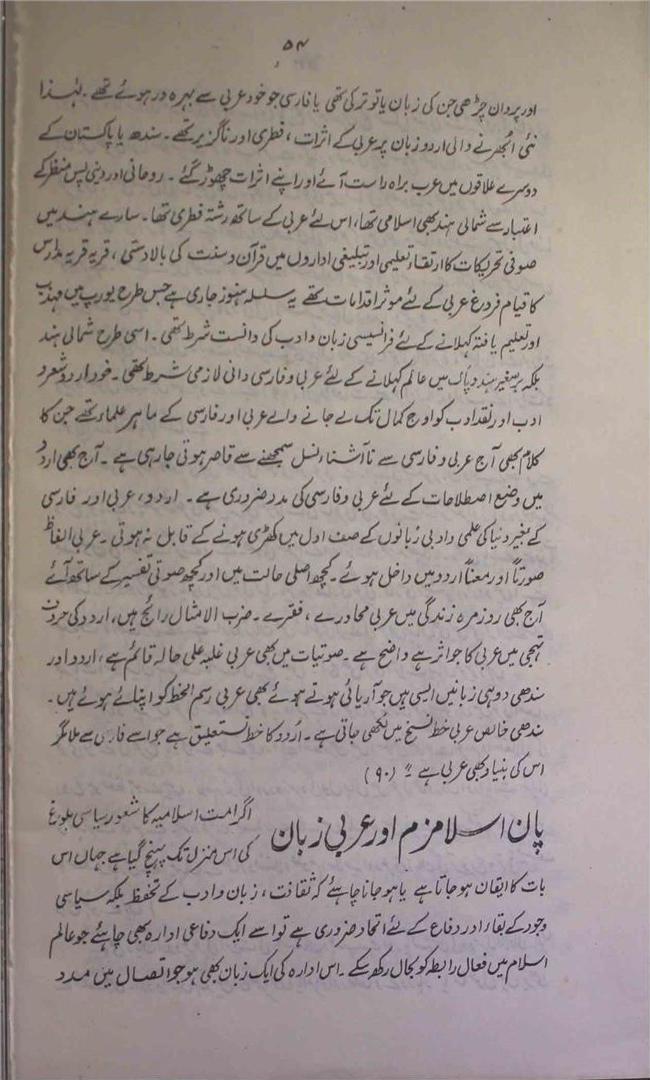 ۵۴
اور پروان چڑھی جن کی زبان یا تو ترکی تھی یا فارسی جو خود عربی سے بہرہ ور ہوئے تھے ۔ لہٰذا
نئی اُبھرنے والی اردو زبان پہ عربی کے اثرات ، فطری اور ناگزیر تھے ۔ سندھ یا پاکستان کے
دوسرے علاقوں میں عرب براہ راست آئے اور اپنے اثرات چھوڑ گئے ۔ روحانی اور دینی پس منظر کے
اعتبار سے شمالی ہند بھی اسلامی تھا، اس لئے عربی کے ساتھ رشتہ فطری تھا ۔ سارے ہند میں
صوفی تحریکات کا ارتقاء تعلیمی اور تبلیغی اداروں میں قرآن و سنت کی بالادستی ، قریہ قریہ مدارس
کا قیام فروغ عربی کے لئے موثر اقدامات تھے یہ سلسلہ ہنوز جاری ہے جس طرح یورپ میں مہذب
اور تعلیم یافتہ کہلانے کے لئے فرانسیسی زبان و ادب کی دانست شرط تھی ۔ اسی طرح شمالی ہند
بلکہ برصغیر ہند و پاک میں عالم کہلانے کے لئے عربی و فارسی دانی لازمی شرط تھی ۔ خود اردو شعر و
ادب اور نقد ادب کو اوج کمال تک لے جانے والے عربی اور فارسی کے ماہر علماء تھے جن کا
کلام بھی آج عربی و فارسی سے ناآشنا نسل سمجھنے سے قاصر ہوتی جا رہی ہے ۔ آج بھی اردو
میں وضع اصطلاحات کے لئے عربی و فارسی کی مدد ضروری ہے ۔ اردو ، عربی اور فارسی
کے بغیر دنیا کی علمی و ادبی زبانوں کے صف اول میں کھڑی ہونے کے قابل نہ ہوتی ۔ عربی الفاظ
صورتاً اور معناً اردو میں داخل ہوئے ۔ کچھ اصلی حالت میں اور کچھ صوتی تفسیر کے ساتھ آئے
آج بھی روزمرہ زندگی میں عربی محاورے ، فقرے ۔ ضرب الامثال رائج ہیں ، اردو کی حروف
تہجی میں عربی کا جو اثر ہے واضح ہے ۔ صوتیات میں بھی عربی غلبہ علی حالہ قائم ہے ، اردو اور
سندھی دو ہی زبانیں ایسی ہیں جو آریائی ہوتے ہوئے بھی عربی رسم الخط کو اپنائے ہوئے ہیں ۔
سندھی خالص عربی خط نسخ میں لکھی جاتی ہے ۔ اُردو کا خط نستعلیق ہے جو اسے فارسی سے ملا مگر
اس کی بنیاد بھی عربی ہے ۔" (۹۰)
پان اسلامزم اور عربی زبان
اگر امت اسلامیہ کا شعور سیاسی بلوغ
کی اس منزل تک پہنچ گیا ہے جہاں اس
بات کا ایقان ہو جاتا ہے یا ہو جانا چاہئے کہ ثقافت ، زبان و ادب کے تحفظ بلکہ سیاسی
وجود کے بقاء اور دفاع کے لئے اتحاد ضروری ہے تو اسے ایک دفاعی ادارہ بھی چاہئے جو عالم
اسلام میں فعال رابطہ کو بحال رکھ سکے ۔ اس ادارہ کی ایک زبان بھی ہو جو اتصال میں مدد